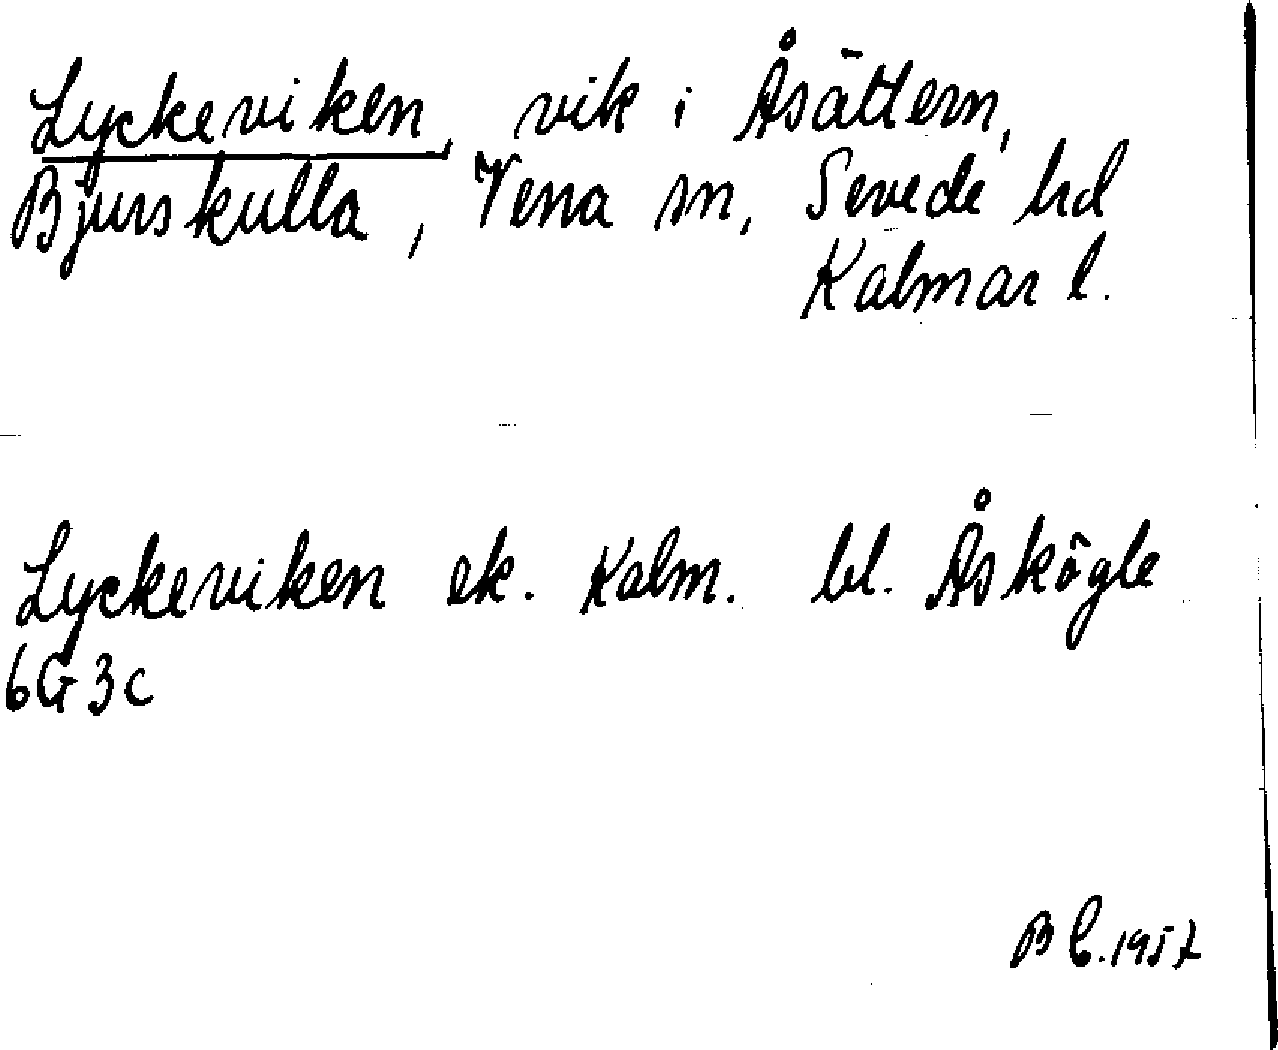 Lyckeviken, vik i Åsättern,
Bjurskulla, Vena sn, Sevede hd
Kalmar l.
Lyckeviken ek. Kalm. bl. Åskögle
6G3c
B C. 1957